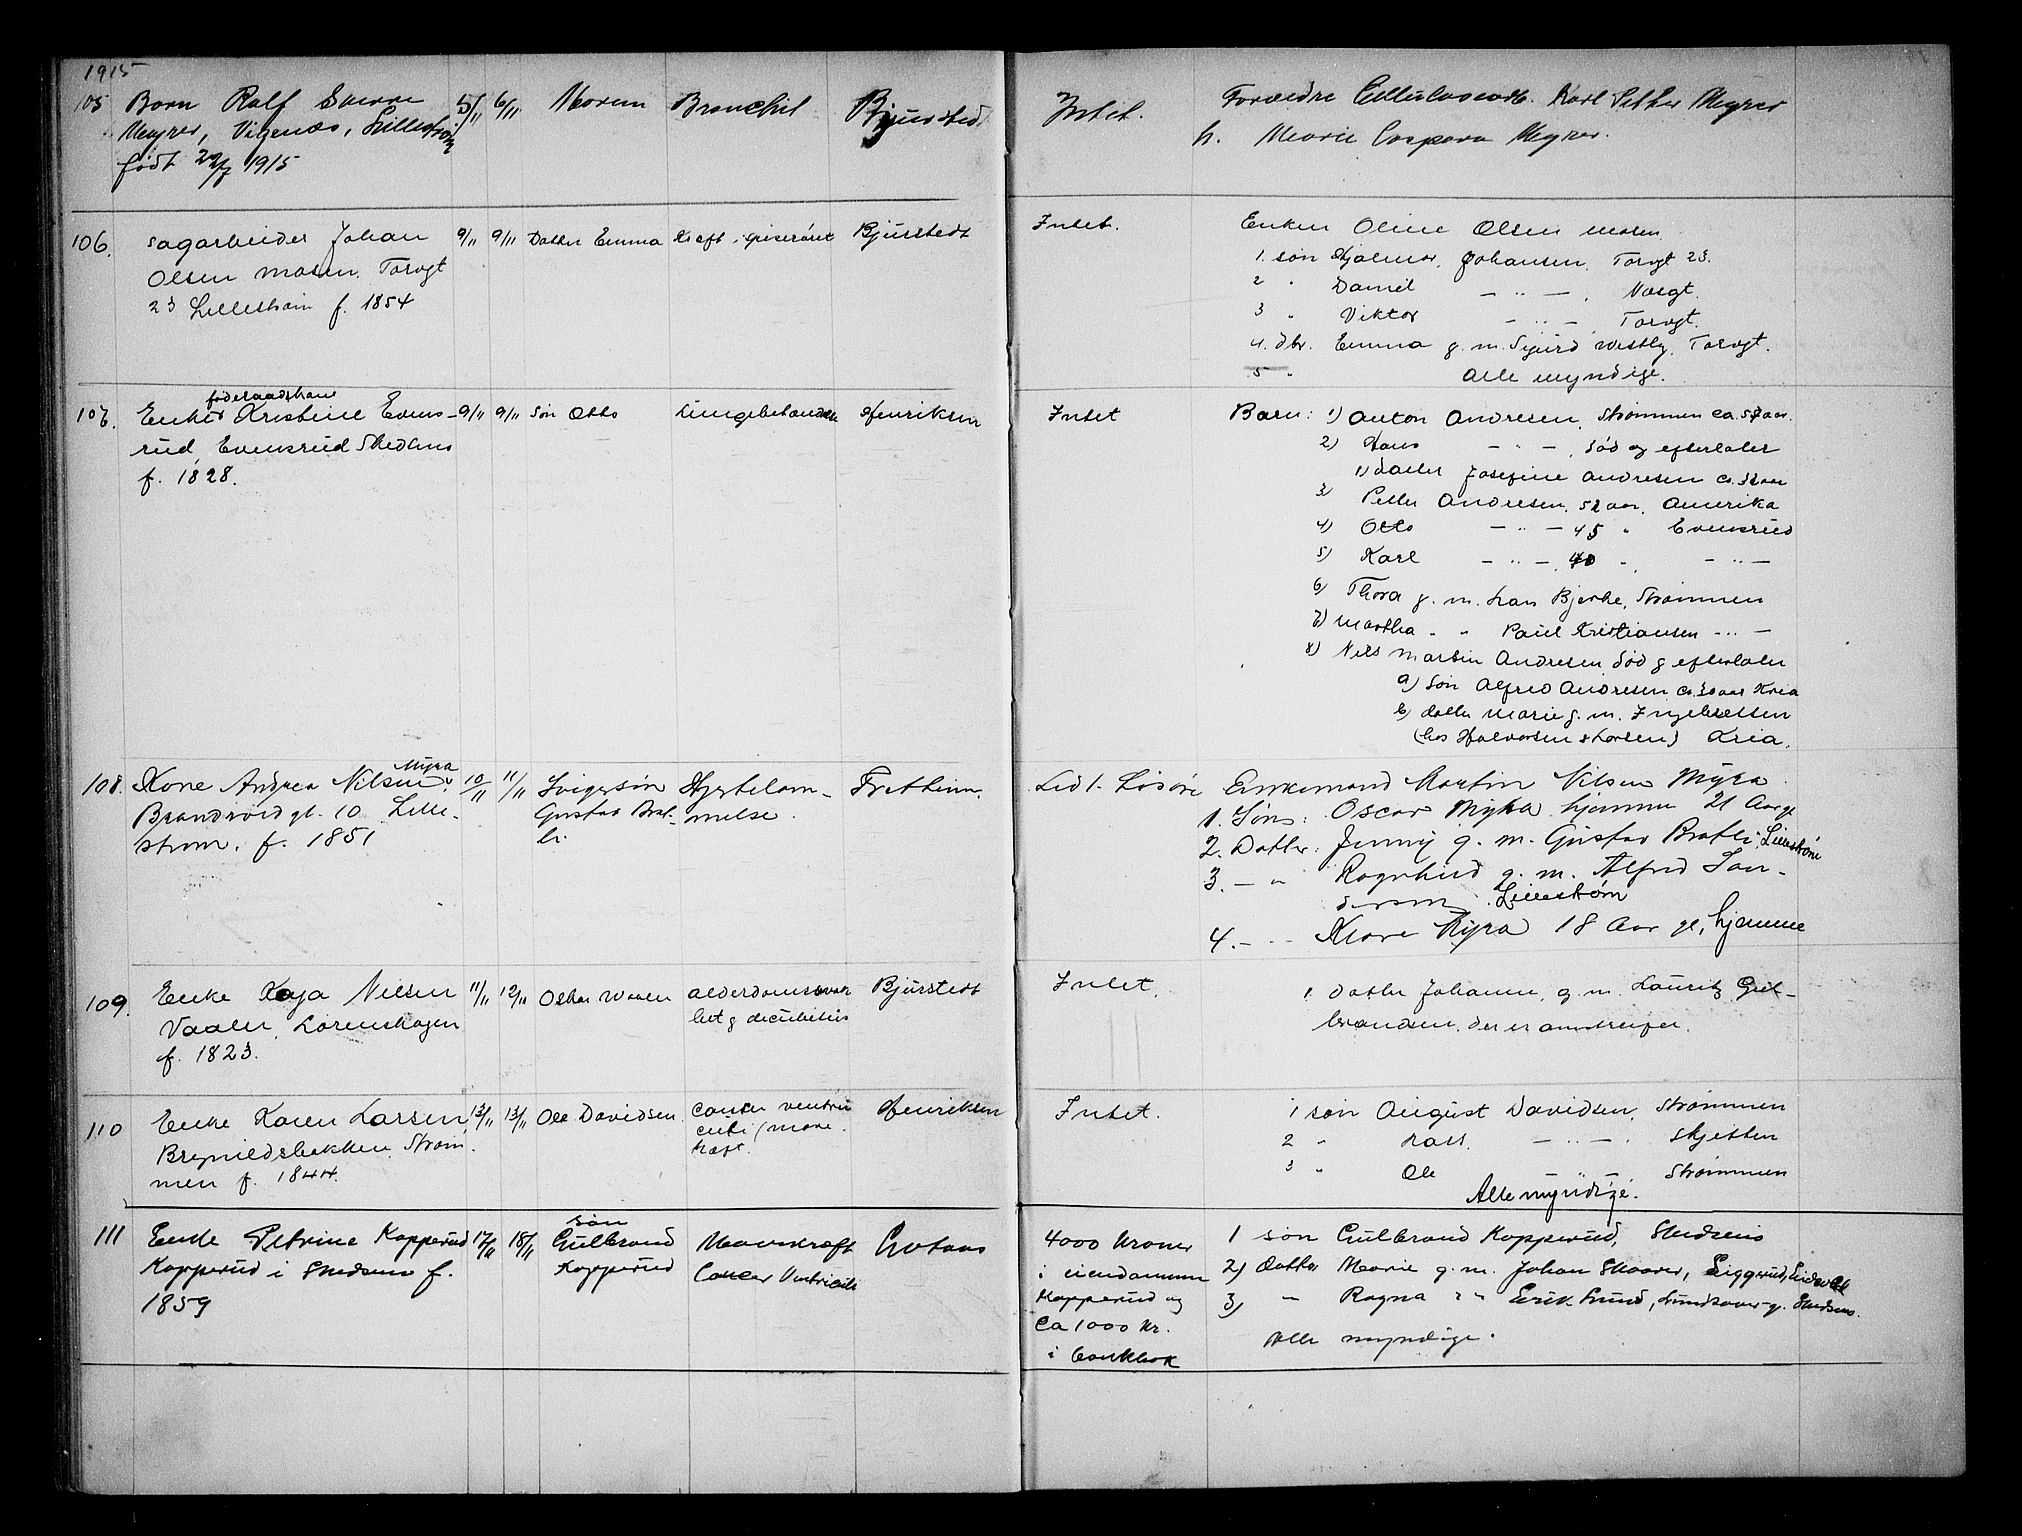 1915
105 Barn Ralf Sverre 5/11 6/11 Moren Bronchit Bjurstedt Intet. Forældre Cellulosearb. Karl Pether Myrer
Myrer, Vigenæs, Lillestrøm h. Marie Caspara Myrer.
født 1915
106. sagarbeider Johan 9/11 9/11 Datter Emma Kræft i spiserøret Bjurstedt Intet. Enken Oline Olsen Mosen
Olsen Mosen. Torvgt 1. søn Hjalmar Johansen. Torvgt 23.
23 Lillestrøm f. 1854 2 " Daniel — " — . Næsgt.
3 " Viktor — " — Torvgt.
4. dtr. Emma g. m. Sigurd Westby. Torvgt.
5 " Alle myndige.
føderaadskone
107. Enke Kristine Evens- 9/11 9/11 Søn Otto Lungebetændelse Henriksen Intet Barn: 1) Anton Andresen, Strømmen ca. 57 aar.
rud, Evensrud Skedsmo 2) Hans — " — , død og efterlater
f. 1828. 1) datter Josefine Andresen ca. 32 aar
3) Petter Andresen, 52 aar, Amerika
4) Otto — " — 45 " Evensrud
5) Karl — " — 40 " — " —
6) Thora g. m. Lars Bjerke, Strømmen
7) Martha " " Paul Kristiansen — " —
8) Nils Martin Andresen død & efterlater
a) søn Alfred Andresen ca. 30 aar Kria
b) datter Marie g. m. Ingebretsen
(hos Halvorsen & Larsen) Kria.
Myra
108. Kone Andrea Nilsen 10/11 11/11 Svigersøn Hjertelam- Frethiem. Lidt Løsøre Enkemand Martin Nilsen Myra
Brandvoldgt. 10 Lille- Gustav Brat- melse. 1. Søn: Oscar Myra hjemme 21 Aar gl
strøm. f. 1851 li 2. Datter: Jenny g. m. Gustav Bratli, Lillestrøm
3. — " Ragnhild g. m. Alfred
Lillestrøm
4. — " Myra 18 Aar gl, hjemme
109. Enke Kaja Nilsen 11/11 12/11 Oskar Waaler Alderdomssvak Bjurstedt Intet. 1. Datter Johanne, g. m. Lauritz Gul-
Vaaler, Lørenskogen het & decubitus brandsen. der er omstreifer.
f. 1823.
110 Enke Karen Larsen 13/11 13/11 Ole Davidsen Cancer ventri Henriksen Intet. 1 søn August Davidsen, Strømmen
Brynildsbakken. Strøm- culi (mave- 2 " Karl — " — . Skjetten
men f. 1844. kræft. 3 " Ole — " — Strømmen
Alle myndige.
111 Enke Petrine Kopperud 17/11 18/11 søn Gulbrand Mavekræft 4000 kroner 1 søn Gulbrand Kopperud, Skedsmo
Kopperud i Skedsmo f. Kopperud Cancer Ventriculi i eiendommen 2) datter Marie g. m. Johan Skaarer,
1859 Kopperud og 3) — Ragna " " Erik Lund, Skedsmo.
Ca 1000 kr. Alle myndige.
i bankbok